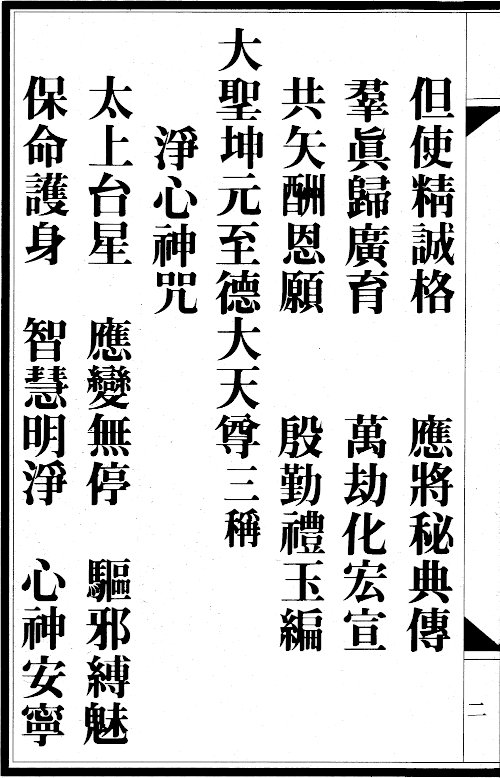 但使精誠格　應將秘典傳
羣眞歸廣育　萬劫化宏宣
共矢酬恩願　殷勤禮玉編
大聖坤元至德大天尊三稱
淨心神咒
太上台星　應變無停　驅邪縛魅
保命護身　智慧明淨　心神安寧
二